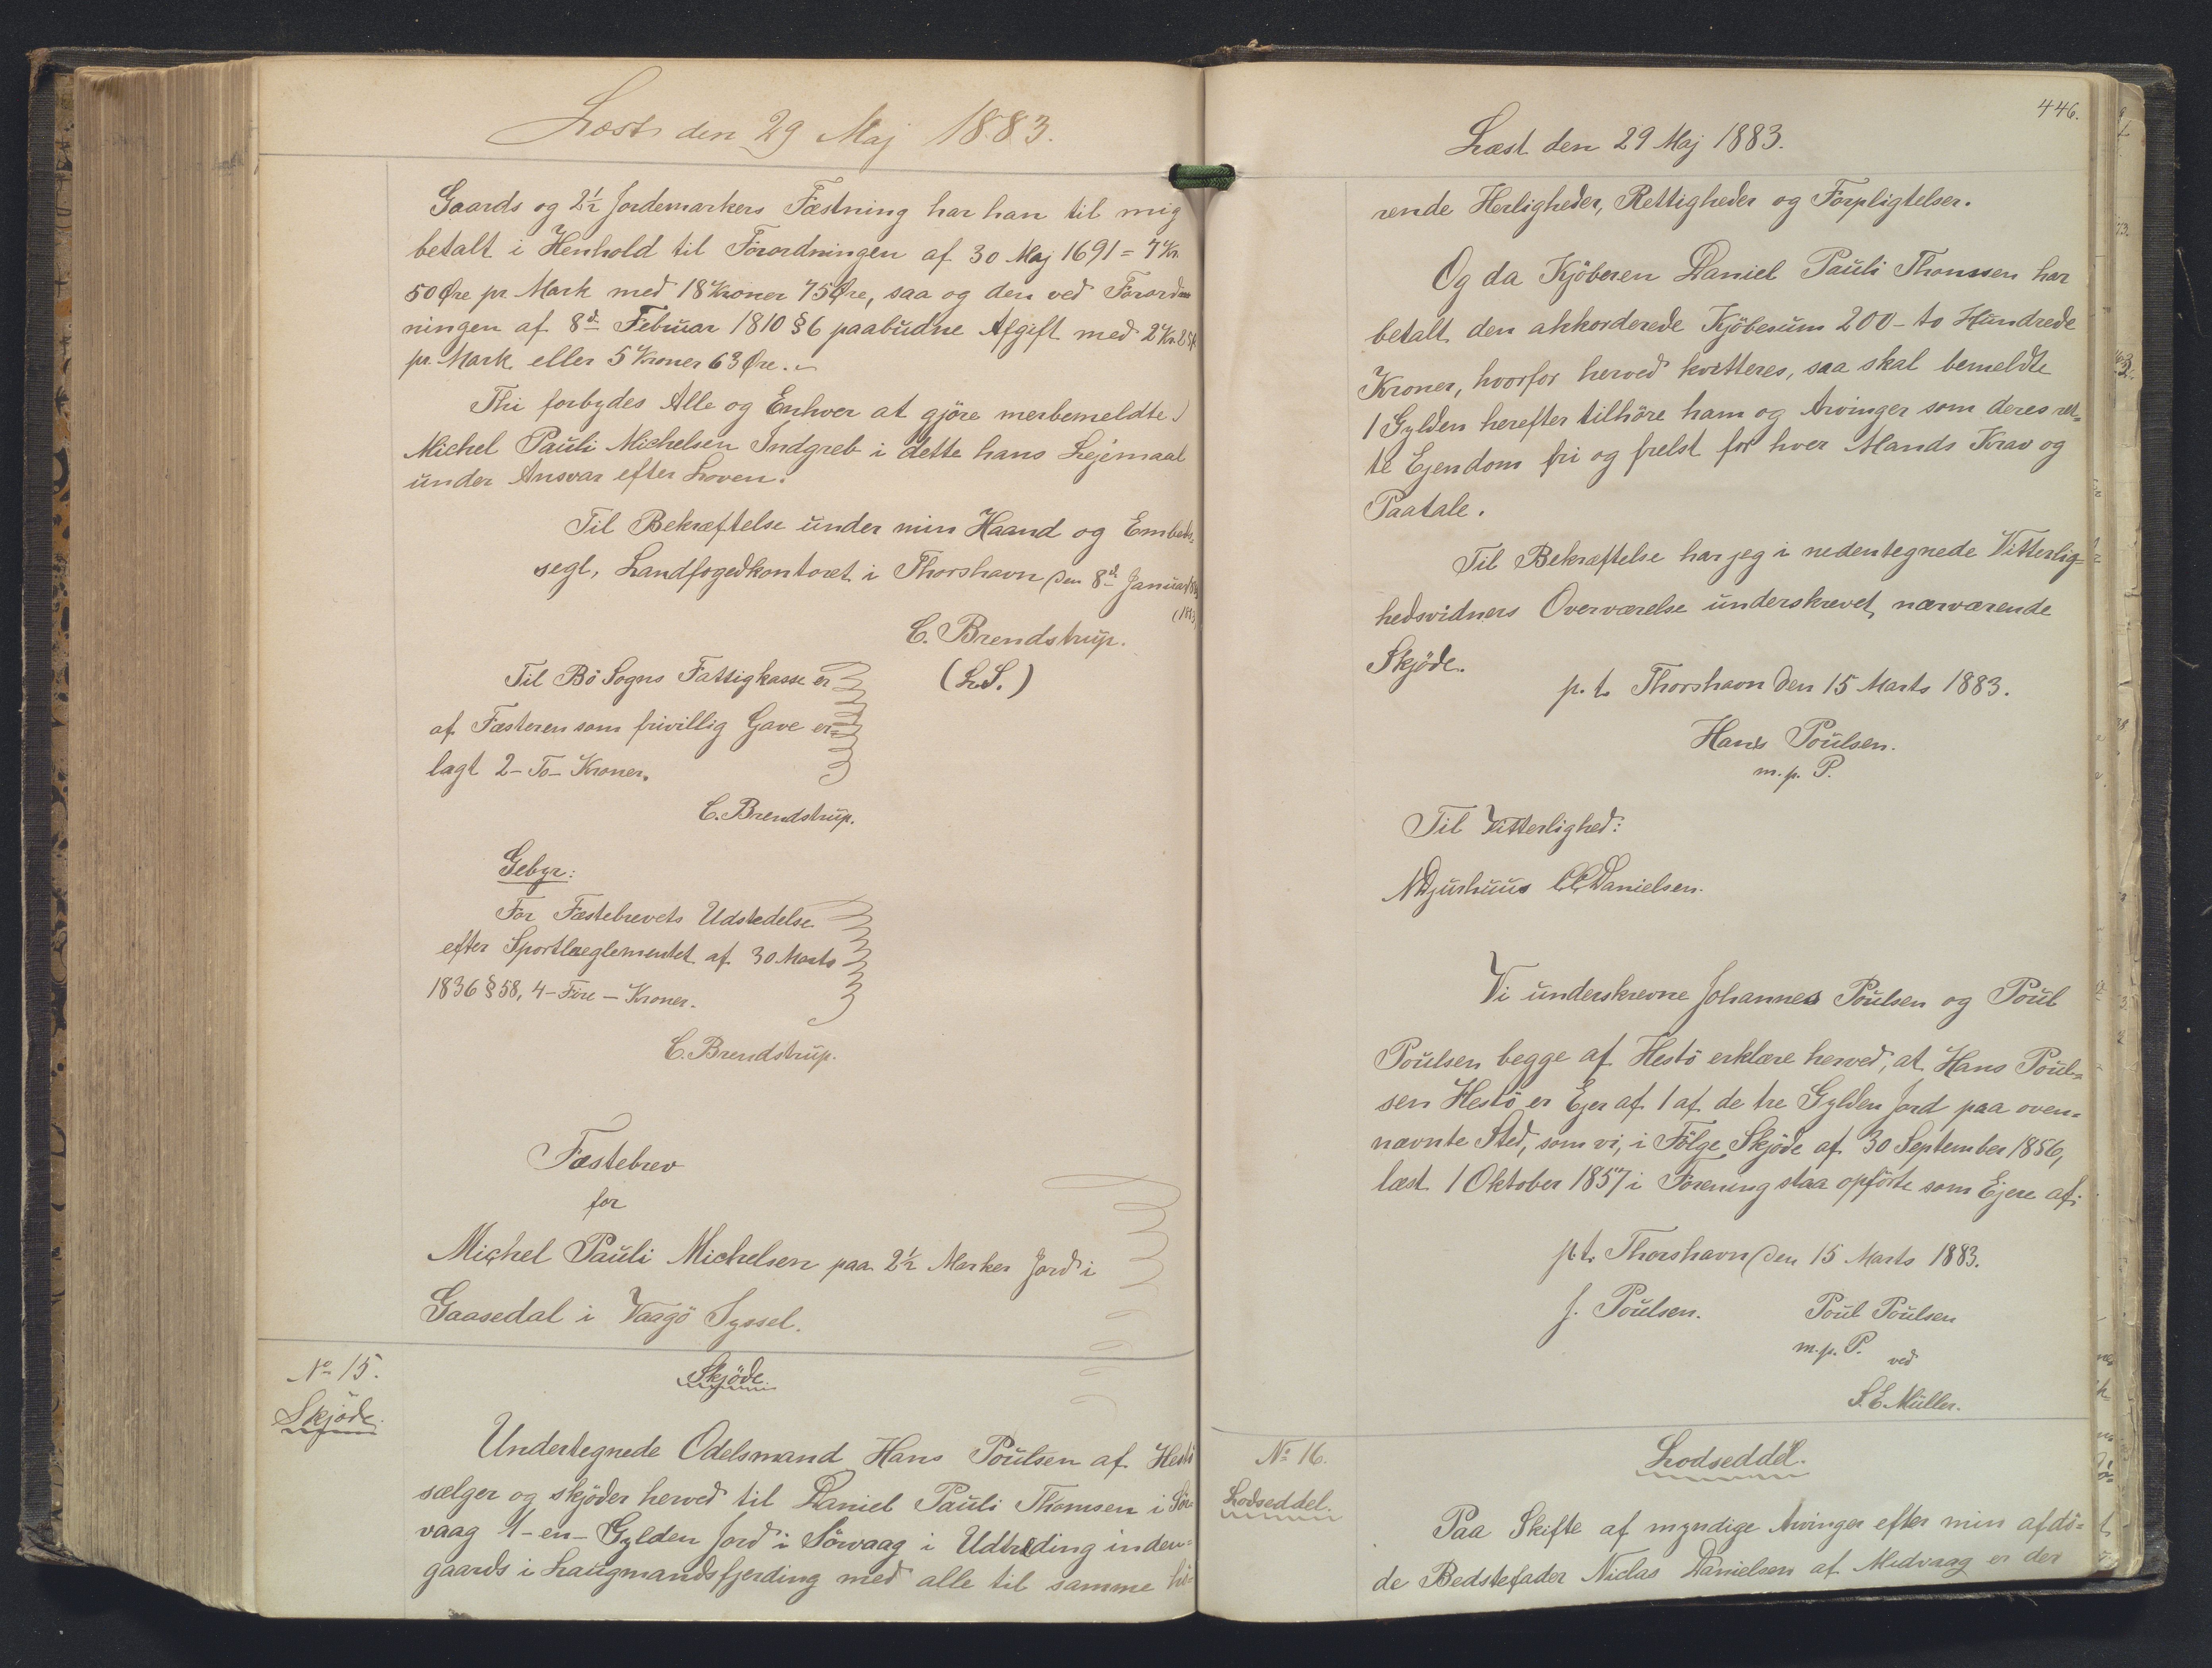 Læst den 29 Maj 1883.
Gaards og 2½ Jordemarkers Fæstning har han til mig
betalt i Henhold til Forordningen af 30 Maj 1691 = 7 Kr.
50 Øre pr Mark med 18 Kroner 75 Øre, saa og den ved Forord=
ningen af 8d Februar 1810 § 6 paabudne Afgift med 2 Kr. 25
pr. Mark eller 5 Kroner 63 Øre.
Thi forbydes Alle og Enhver at gjöre merbemeldte
Michel Pauli Michelsen Indgreb i dette hans Lejemaal
under Ansvar efter Loven.
Til Bekræftelse under min Haand og Embeds=
segl, Landfogedkontoret i Thorshavn den 8d Januar
C. Brendstrup.
(L.S.)
Til Bö Sogns Fattigkasse er
af Fæsteren som frivillig Gave er=
lagt 2 - To - Kroner.
C. Brendstrup.
Gebyr:
For Fæstebrevets Udstedelse
efter Sportlreglementet af 30 Marts
1836 § 58, 4 - Fire - Kroner.
C. Brendstrup.
Fæstebrev
for
Michel Pauli Michelsen paa 2½ Marker Jord i
Gaasedal i Vaagö Syssel.
No 15.
Skjöde.
Skjöde.
Undertegnede Odelsmand Hans Poulsen af Hestö
sælger og skjöder herved til Daniel Pauli Thomsen i Sör=
vaag 1 - en - Gylden Jord i Sörvaag i Udtræding inden=
gaards i Laugmandsfjerding med alle til samme hö=
446.
Læst den 29 Maj 1883.
rende Herligheder, Rettigheder og Forpligtelser.
Og da Kjöberen Daniel Pauli Thomsen har
betalt den akkorderede Kjöbesum 200 - to Hundrede
Kroner, hvorfor herved kvitteres, saa skal bemeldte
1 Gylden herefter tilhöre ham og Arvinger som deres ret=
te Ejendom fri og frelst for hver Mands Krav og
Paatale.
Til Bekræftelse har jeg i nedentegnede Vitterlig=
hedsvidners Overværelse underskrevet nærværende
Skjöde.
p. t. Thorshavn den 15 Marts 1883.
Hans Poulsen.
m. p. P.
Til Vitterlighed:
N Djurhuus CC Danielsen.
Vi underskrevne Johannes Poulsen og Poul
Poulsen begge af Hestö erklære herved, at Hans Poul=
sen Hestö er Ejer af 1 af de tre Gylden Jord paa oven=
nævnte Sted, som vi, i Fölge Skjöde af 30 September 1856,
læst 1 Oktober 1857 i Forening staa opförte som Ejere af.
p. t. Thorshavn den 15 Marts 1883.
J. Poulsen. Poul Poulsen
m. p. P. ved
S. E. Müller.
No 16.
Lodseddel.
Lodseddel.
Paa Skifte af myndige Arvinger efter min afdö=
de Bedstefader Niclas Danielsen af Midvaag er der